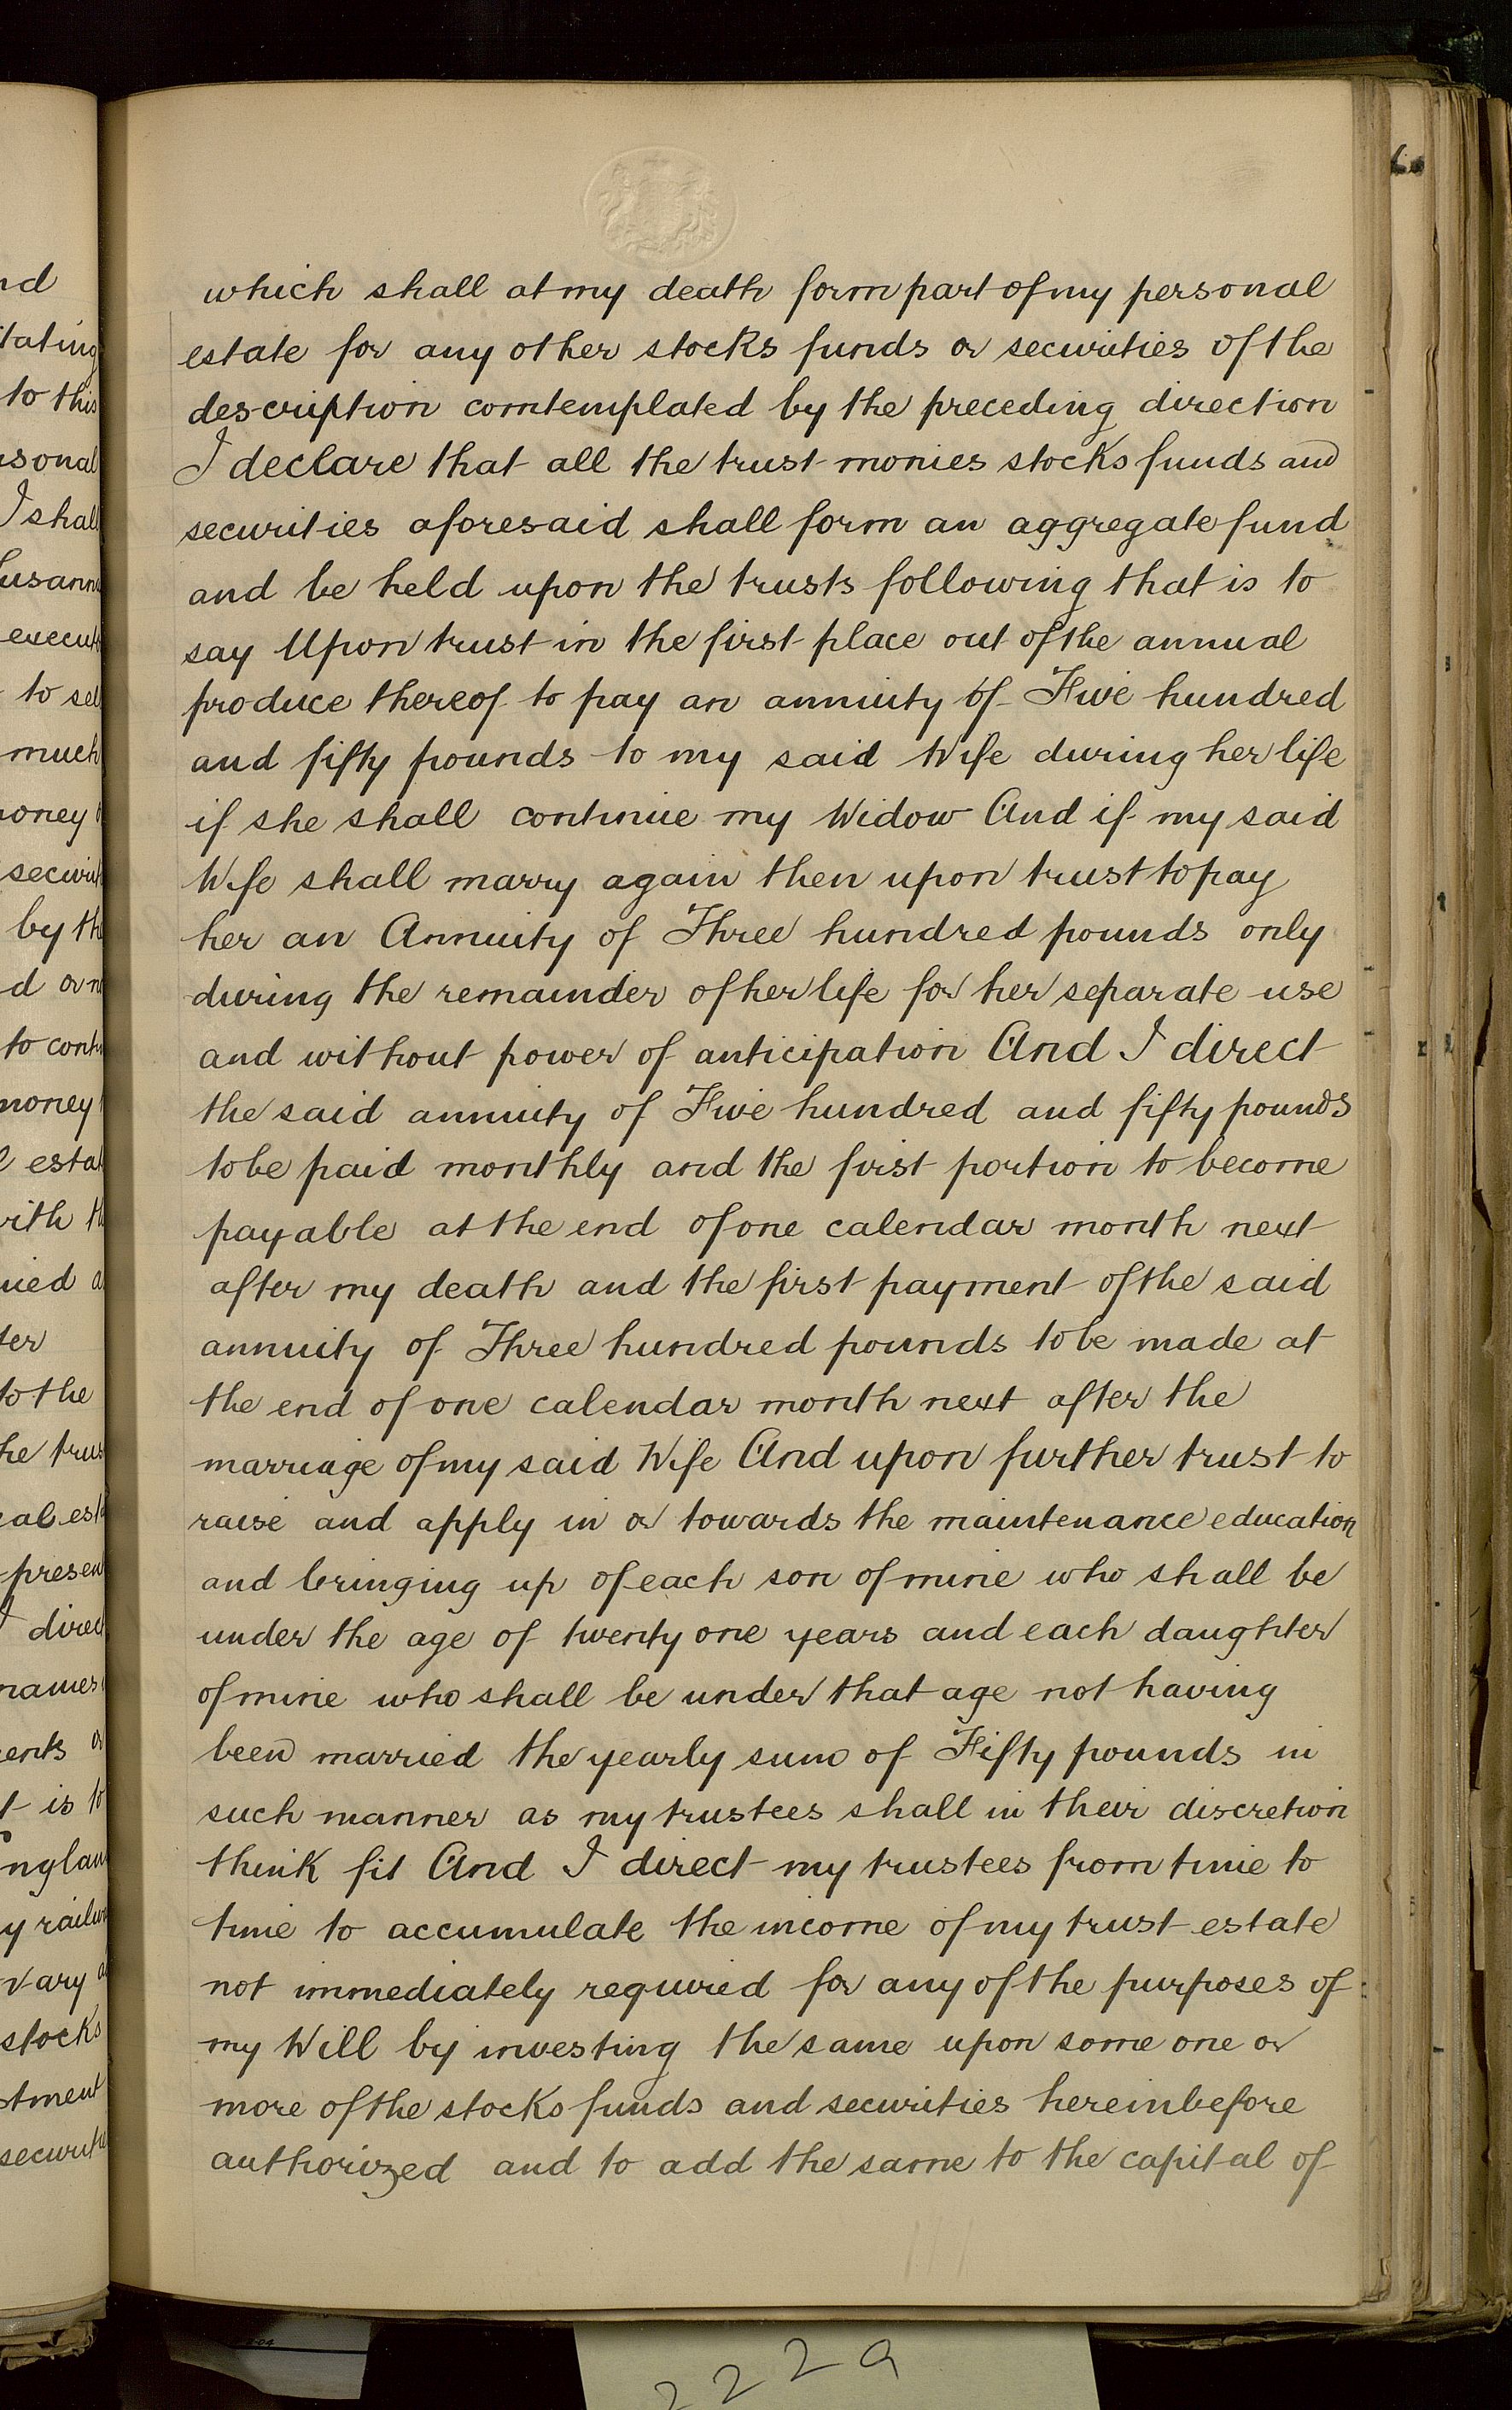 which shall at my death form part of my personal
estate for any other stocks funds or securities of the
description comtemplated by the preceding direction
I declare that all the trust monies stocks funds and
securities aforesaid shall form an aggregate fund
and be held upon the trusts following that is to
say Upon trust in the first place out of the annual
produce thereof to pay an annuity of Five hundred
and fifty pounds to my said Wife during her life
if she shall continue my Widow And if my said
Wife shall marry again then upon trust to pay
her an Annuity of Three hundred pounds only
during the remainder of her life for her separate use
and without power of anticipation And I direct
the said annuity of Five hundred and fifty pounds
to be paid monthly and the first portion to become
payable at the end of one calendar month next
after my death and the first payment of the said
annuity of Three hundred pounds to be made at
the end of one calendar month next after the
marriage of my said Wife And upon further trust to
raise and apply in or towards the maintenance education
and bringing up of each son of mine who shall be
under the age of twenty one years and each daughter
of mine who shall be under that age not having
been married the yearly sum of Fifty pounds in
such manner as my trustees shall in their discretion
think fit And I direct my trustees from time to
time to accumulate the income of my trust estate
not immediately required for any of the purposes of
my Will by investing the same upon some one or
more of the stocks funds and securities hereinbefore
authorized and to add the same to the capital of
2229